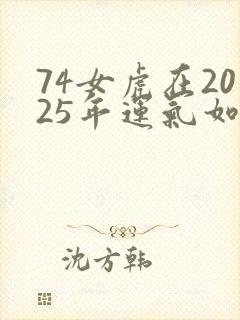 74女虎在20
25年運氣如
沈方韩